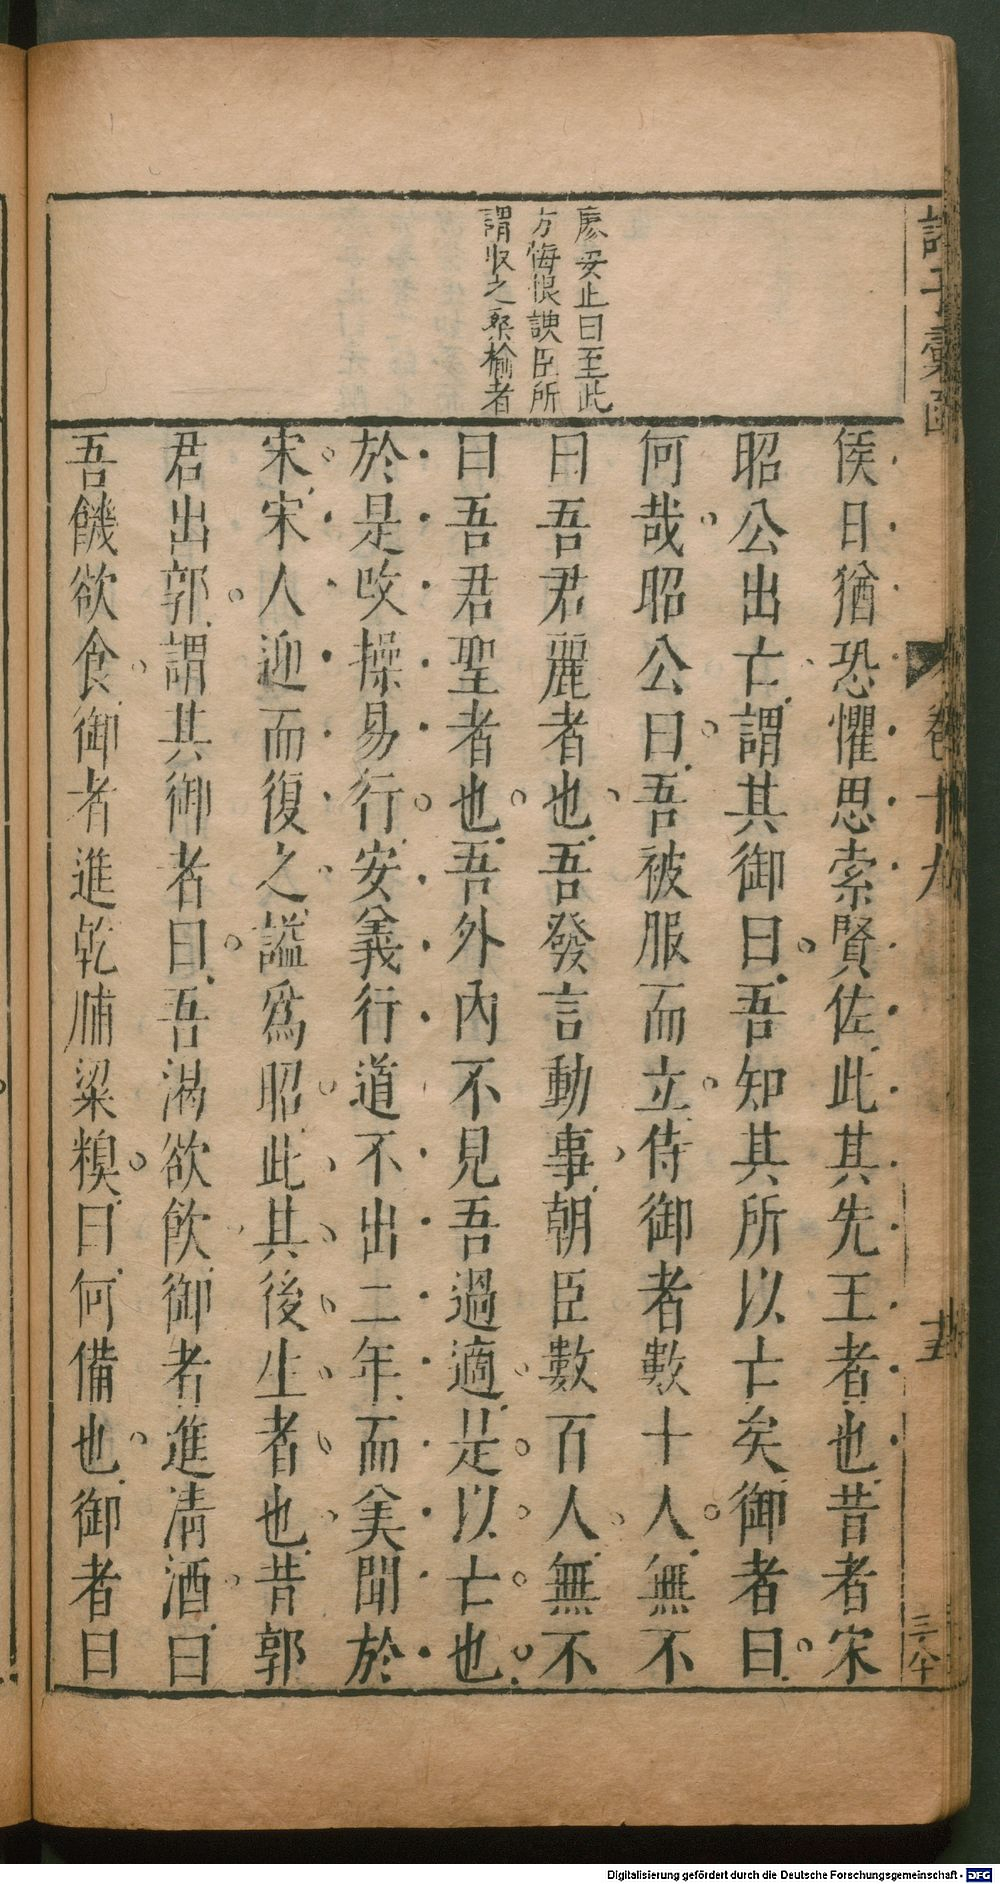 處安止曰至此
方悔恨諛臣所
謂收之桑榆者
侯日猶恐懼思索賢佐此其先王者也昔者宋
昭公出亡謂其御曰吾知其所以亡矣御者曰
何哉昭公曰吾被服而立侍御者數十人無不
曰吾君麗者也吾發言動事朝臣數百人無不
曰吾君聖者也吾外內不見吾過適是以亡也
於是改操易行安義行道不出二年而美聞於
宋宋人迎而復之謚爲昭此其後生者也昔郭
君出郭謂其御者曰吾渴欲飲御者進清酒曰
吾饑欲食御者進乾脯粱糗曰何備也御者曰
卷十九
Digitalisierung gefördert durch die Deutsche Forschungsgemeinschaft - DFG